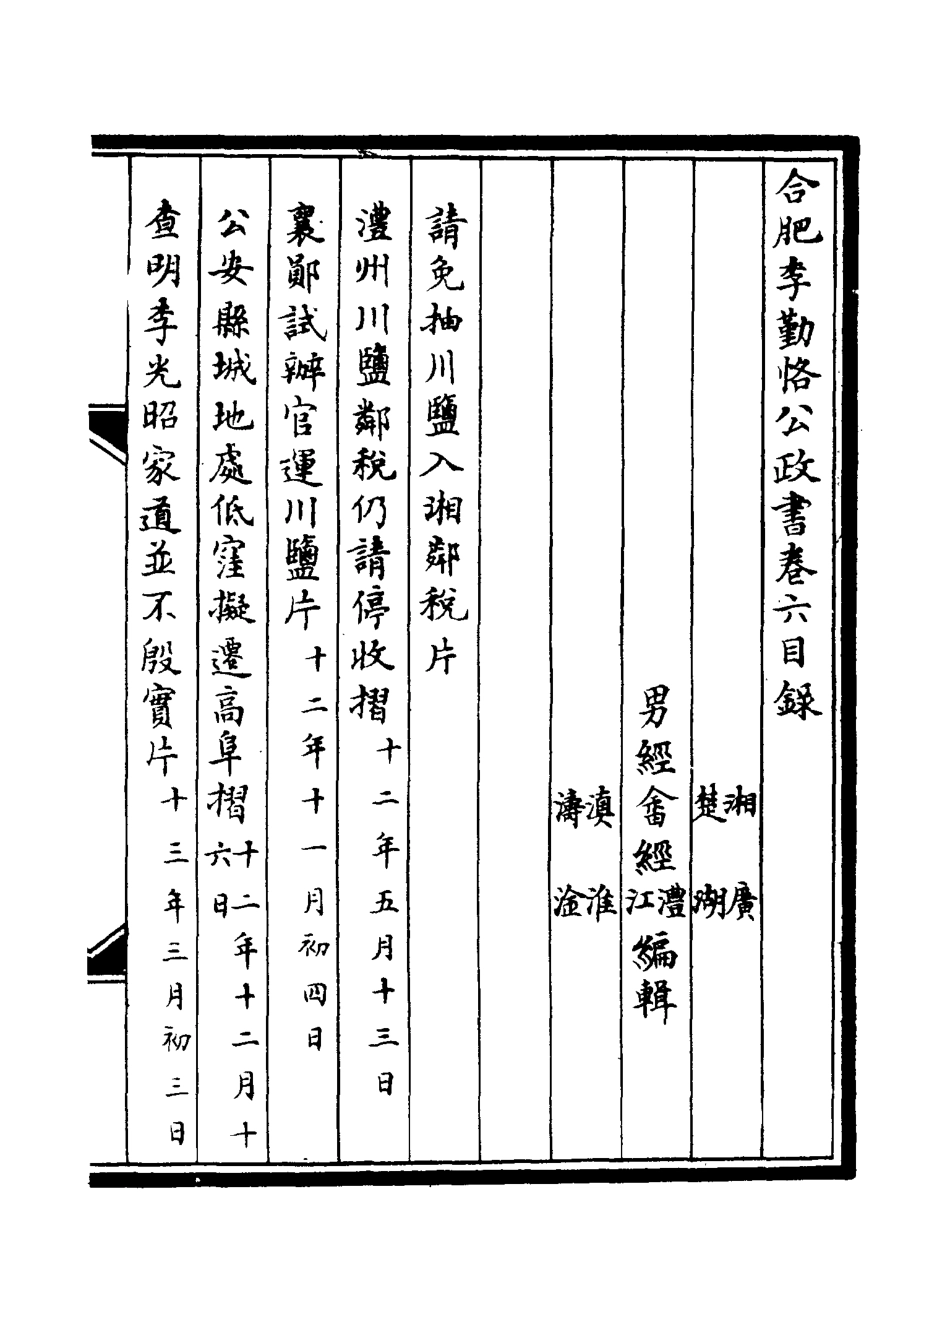 合肥李勤恪公政書卷六目錄
湘　廣
楚　湖
男經畬經澧江編輯
滇　淮
濤　淦
請免抽川鹽入湘鄰稅片
澧州川鹽鄰稅仍請停收摺十二年五月十三日
襄鄖試辦官運川鹽片十二年十一月初四日
公安縣城地處低窪擬遷高阜摺十二年十二月十六日
查明李光昭家道並不殷實片十三年三月初三日